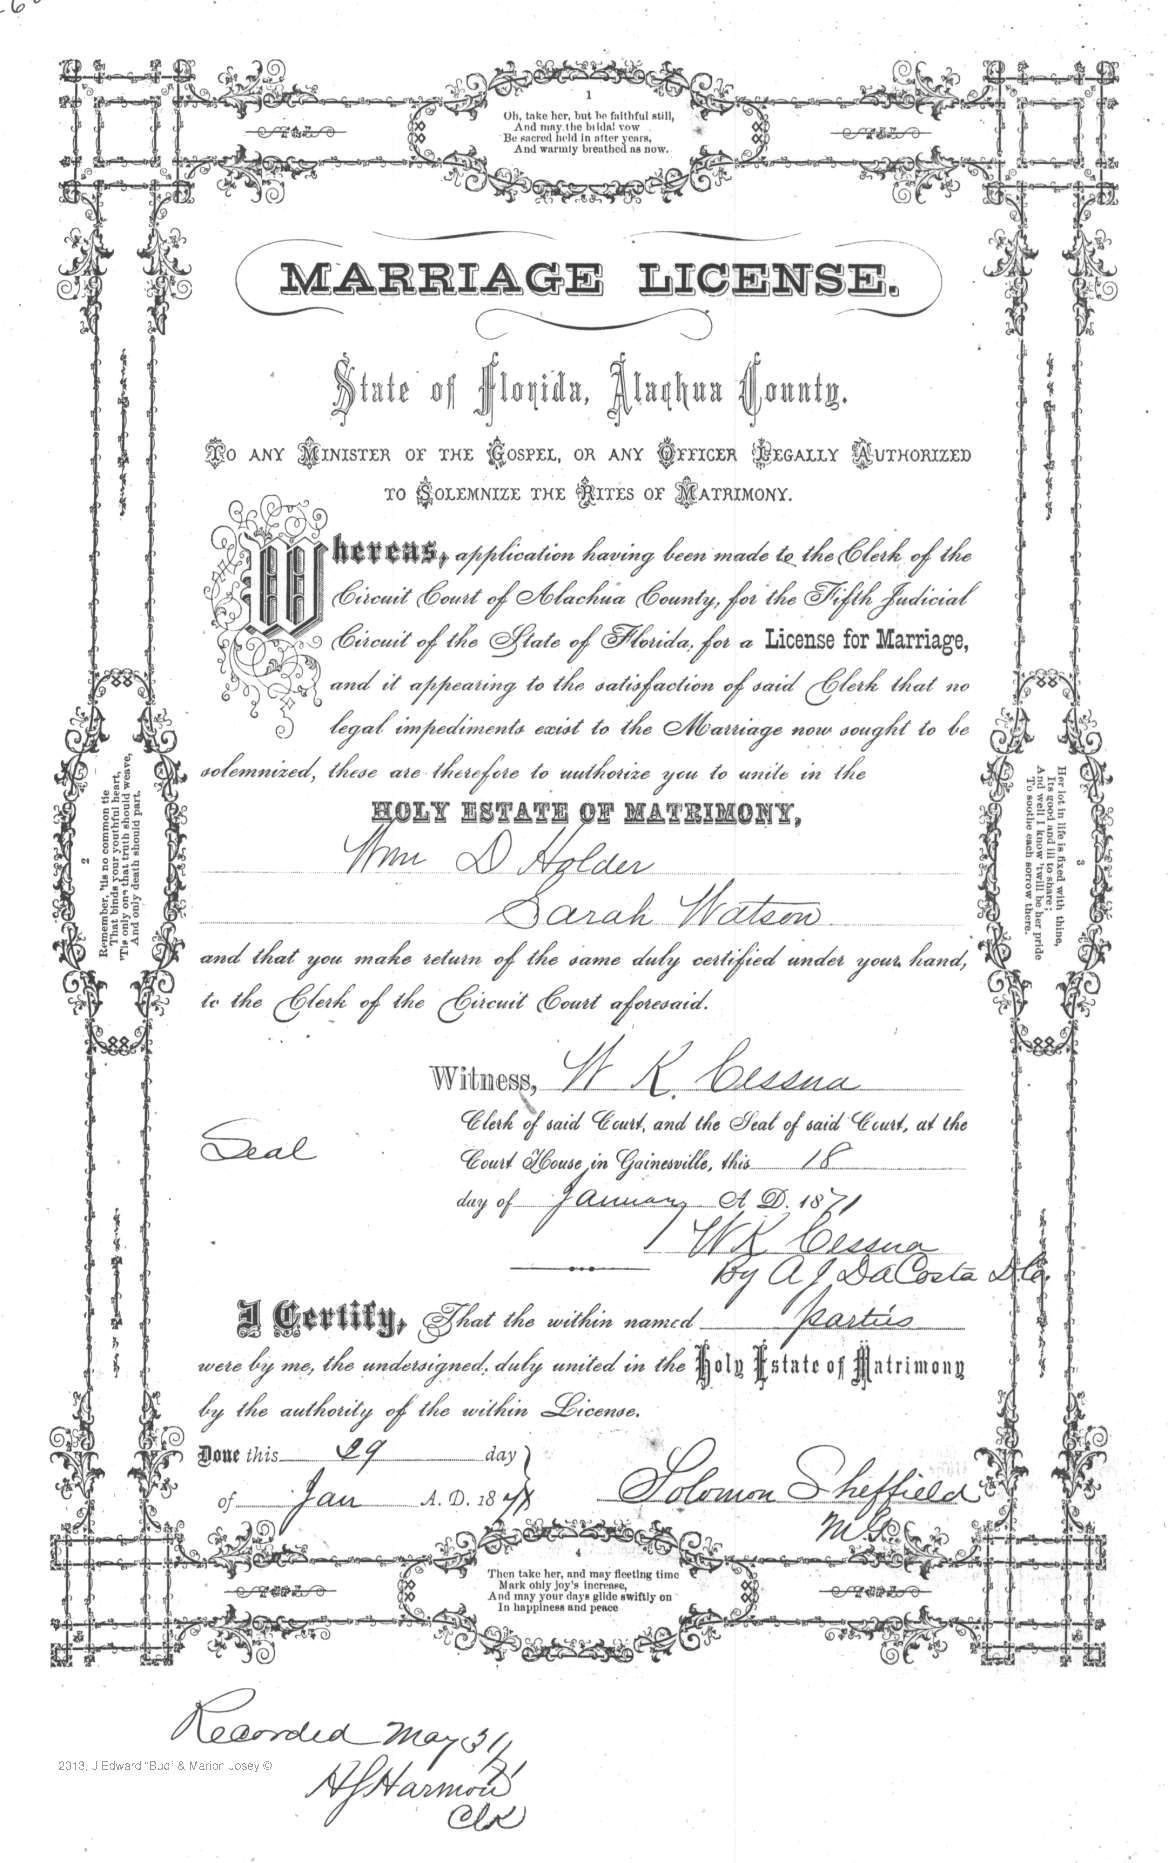 1
Oh, take her, but be faithful still,
And may the bridal vow
Be sacred held in after years,
And warmly breathed as now.
MARRIAGE LICENSE.
State of Florida, Alachua County.
TO ANY MINISTER OF THE GOSPEL, OR ANY OFFICER LEGALLY AUTHORIZED
TO SOLEMNIZE THE RITES OF MATRIMONY.
Whereas, application having been made to the Clerk of the
Circuit Court of Alachua County, for the Fifth Judicial
Circuit of the State of Florida, for a License for Marriage,
and it appearing to the satisfaction of said Clerk that no
legal impediments exist to the Marriage now sought to be
solemnized, these are therefore to authorize you to unite in the
HOLY ESTATE OF MATRIMONY,
Wm D Holder
Sarah Watson
and that you make return of the same duly certified under your hand,
to the Clerk of the Circuit Court aforesaid.
2
Remember, 'tis no common tie
That binds your youthful heart,
'Tis only one that truth should weave,
And only death should part.
3
Her lot in life is fixed with thine,
Its good and ill to share;
And well I know 'twill be her pride
To soothe each sorrow there.
Witness, W K. Cessna
Clerk of said Court, and the Seal of said Court, at the
Seal
Court House in Gainesville, this 18
day of January A. D. 1871
W K Cessna
By A J DaCosta
I Certify, That the within named parties
were by me, the undersigned, duly united in the Holy Estate of Matrimony
by the authority of the within License.
Done this 29 day
of Jan A. D. 18
Solomon Sheffield
M G
4
Then take her, and may fleeting time
Mark only joy's increase,
And may your days glide swiftly on
In happiness and peace
Recorded May 31/71
2013, J Edward "Bud" & Marion Josey ©
Harmon
Clk